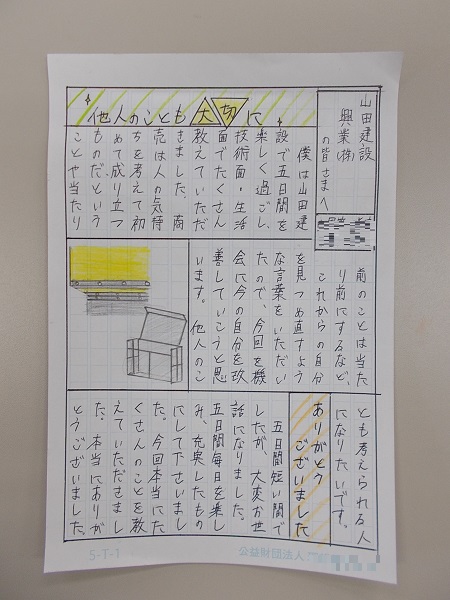 他人のことも大切に
山田建設
興業㈱
の皆さまへ
僕は山田建
設で五日間を
楽しく過ごし、
技術面・生活
面でたくさん
教えていただ
きました。商
売は人の気持
ちを考えて初
めて成り立つ
ものだ、という
ことや当たり
前のことは当た
り前にするなど、
これからの自分
を見つめ直すよう
な言葉をいただい
たので、今回を機
会に今の自分を改
善していこうと思
います。他人のこ
とも考えられる人
になりたいです。
ありがとう
ございました
五日間短い間で
したが、大変お世
話になりました。
五日間毎日を楽し
み、充実したもの
にして下さいまし
た。今回本当にた
くさんのことを教
えていただきまし
た。本当にありが
とうございました。
S-T-1
公益財団法人